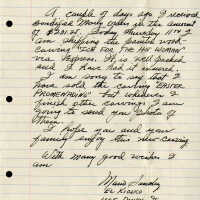 A couple of days ago I received
Money order in the amount
of $231.25. Today Thursday 11th I
am shipping the painted wood
carving "FOR THE WOMAN"
via Express. It is well packed
and I have had it insured.
I am sorry to say that I
have sold the carving EASTER
PROMENADING but whenever I
finish other carvings I am
going to send you photo of
them.
I hope you and your
family enjoy this new carving
With many good wishes I
am
EL KIOSKO